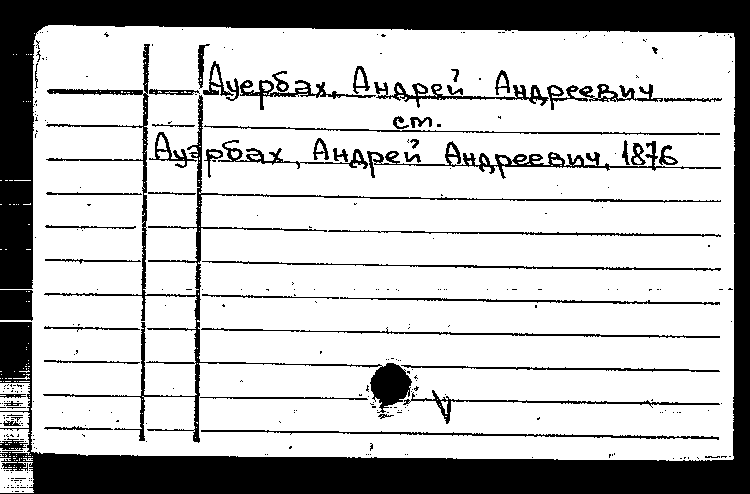 Ауербах, Андрей Андреевич
ст.
Ауэрбах, Андрей Андреевич, 1876
V